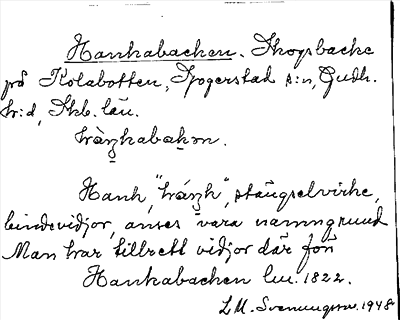 Hankabacken. Skogsbacke
på Kolabotten, Spogerstad s:n, Gudh.
h:d, Skb. län.
Hank, "håŋk", stängselvirke,
bindevidjor, anses vara namngrund
Man har tillrett vidjor där förr
Hankabacken lm. 1822.
L.M. Svenungsson. 1948